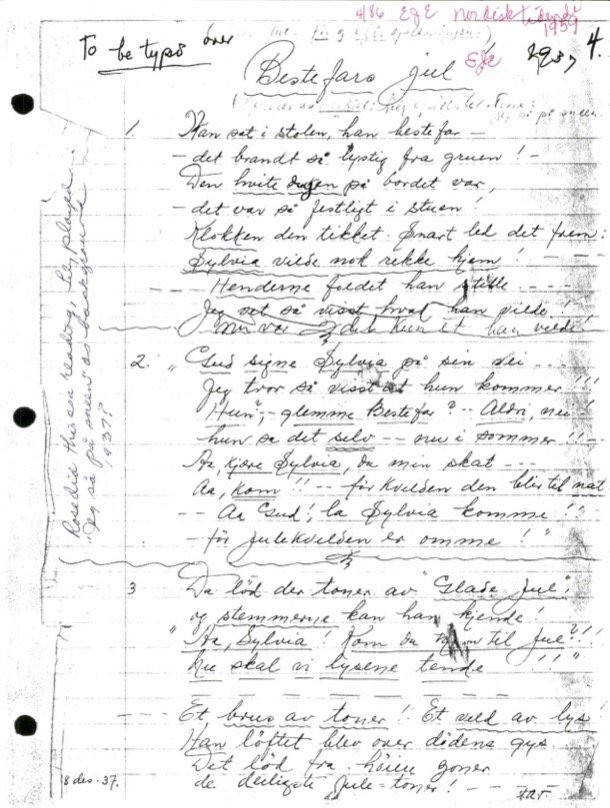 486 EGE Nordisk Tidende
1959
4.
To be typed over
SfE 1937
Bestefars jul
1. Han sat i stolen, han bestefar —
— det brandt så lystig fra gruen! —
Den hvite dugen på bordet var,
— det var så festligt i stuen!
Klokken den tikket. Snart led det frem:
Sylvia vilde nok rekke hjem!
— Henderne foldet han stille ----
Jeg vet så visst, hvad han vilde!
der kun et han vilde!
2. "Gud signe Sylvia på sin vei ....
Jeg tror så visst at hun kommer!!!
Hun"; - glemme Bestefar? -- Aldri, nei!
hun sa det selv -- nu i sommer!! --
Aa, kjære Sylvia, du min skat ---
Aa, kom!! -- før kvelden den blir til nat
-- Aa Gud! la Sylvia komme!!
— før julekvelden er omme!"
3 Da lød der toner av "Glade jul",
og stemmerne kan han kjende!
"Aa, Sylvia! Kom du til jul"?!!
Nu skal vi lysene tende!!"
--- Et brus av toner! Et veld av lys!
Han løftet blev over dødens gys
Det lød fra høiere
de deiligste Jule-toner! --
8 des. 37.
Rose did this as a reading, Lily played
"Jeg så på sneen" as background
1937?